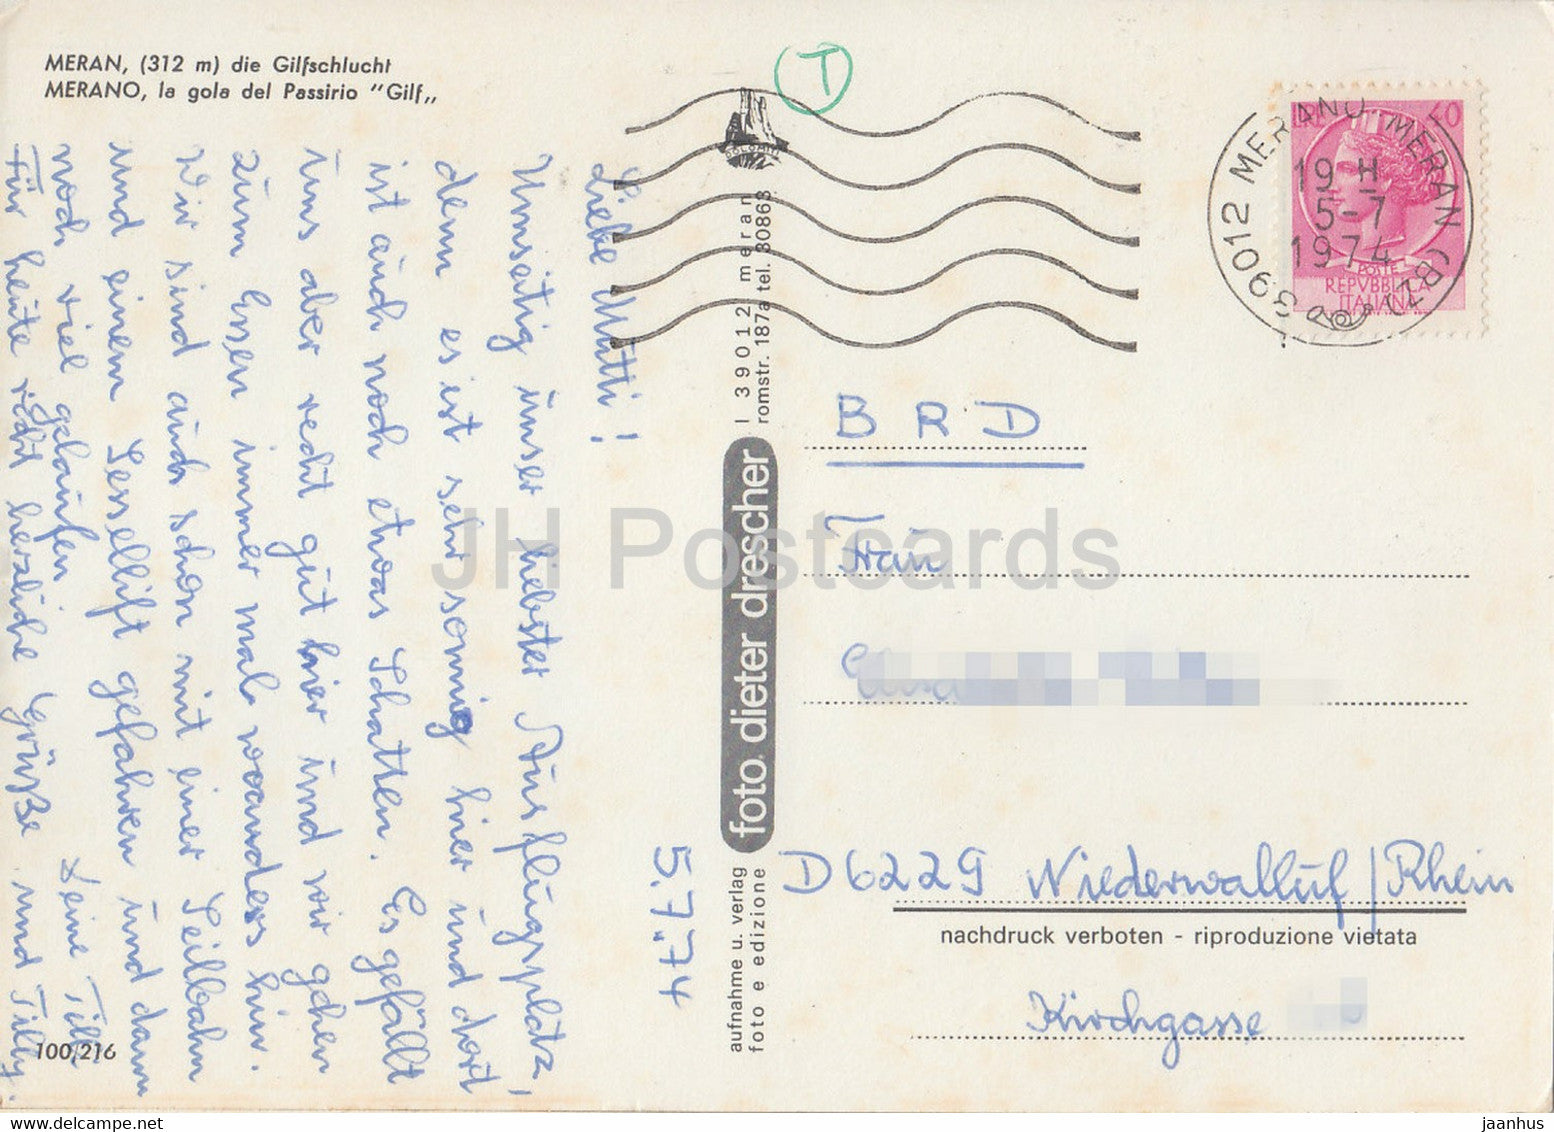 MERAN, (312 m) die Gilfschlucht
MERANO, la gola del Passirio "Gilf„
5.7.74
Liebe Mutti!
Umseitig unser liebster Ausflugsplatz,
dem es ist sehr sonnig hier und dort
ist auch noch etwas Schatten. Es gefällt
uns aber recht gut hier und wir gehen
zum Essen immer mal woanders hin.
Wir sind auch schon mit einer Seilbahn
und einem Sessellift gefahren und dann
noch viel gelaufen.
Für heute recht herzliche Grüße
und Tilly.
100/216
DOLOMITI
I 39012 meran
romstr. 187a tel. 30863
foto dieter drescher
aufnahme u. verlag
foto e edizione
T
39012 MERANO-MERAN (BZ)
19-H
5-7
1974
POSTE
REPVBBLICA
ITALIANA
BRD
Frau
D 6229 Niederwalluf/Rhein
nachdruck verboten - riproduzione vietata
Kirchgasse
JH Postcards
delcampe.net
jaanhus